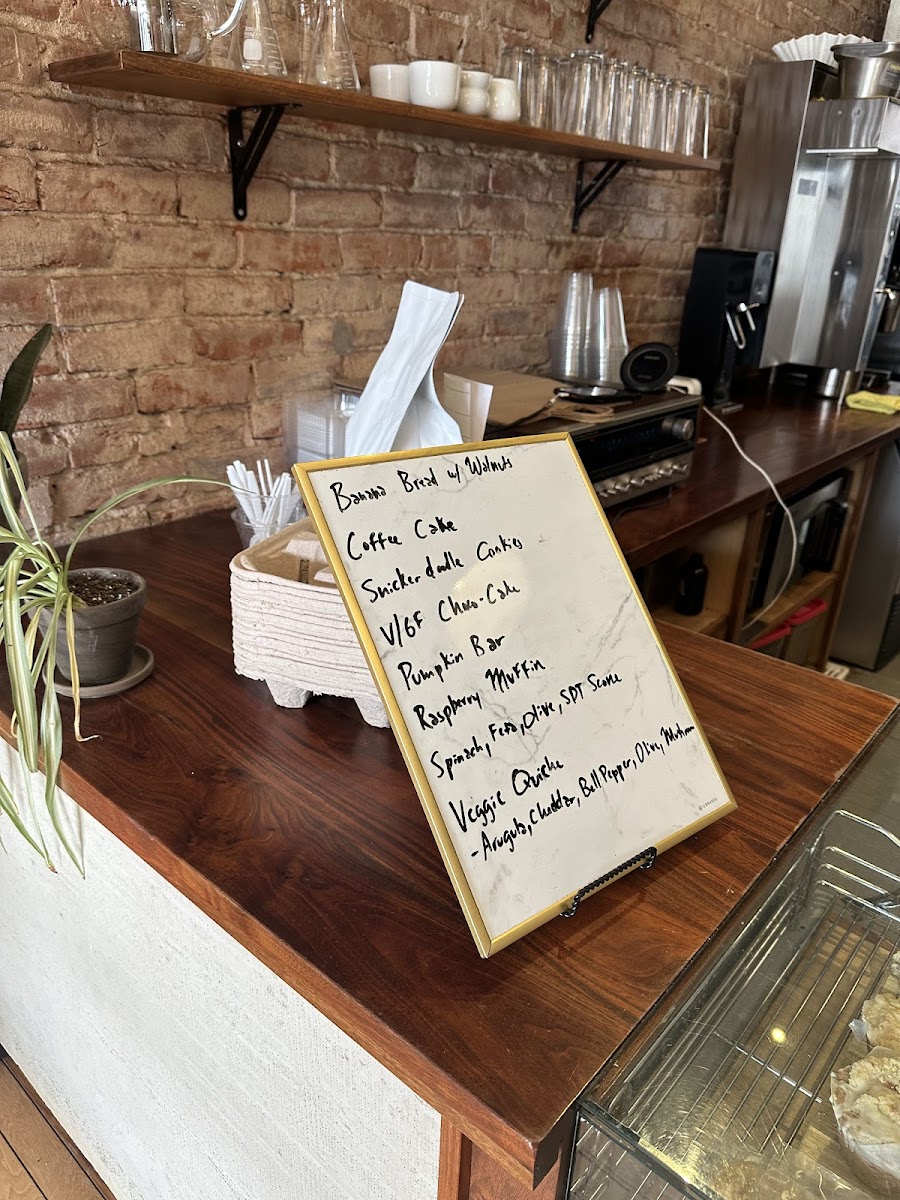 Banana Bread w/ Walnuts
Coffee Cake
Snickerdoodle Cookies
V/GF Choco-Cake
Pumpkin Bar
Raspberry Muffin
Spinach, Feta, Olive, SDT Scone
Veggie Quiche
- Arugula, Cheddar, Bell Pepper, Olive, Mushroom